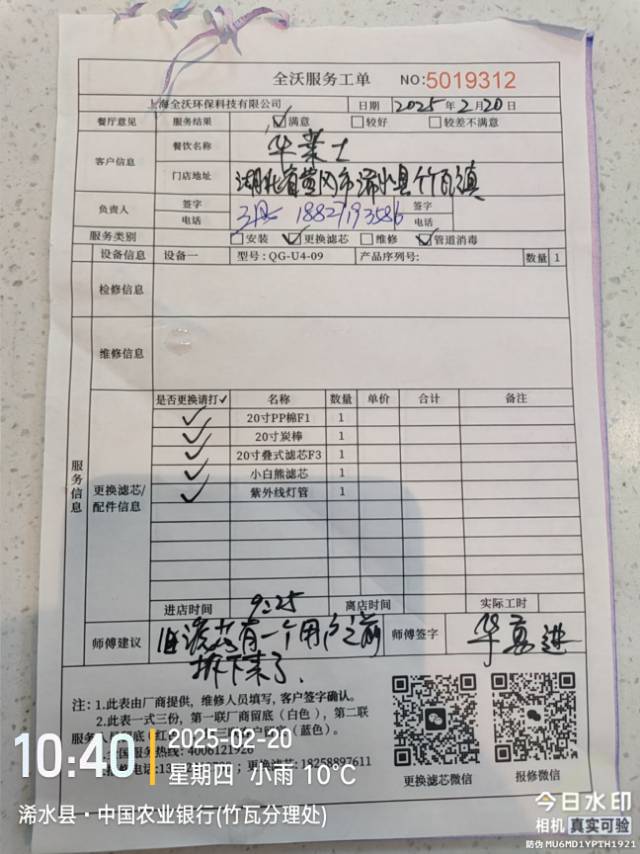 全沃服务工单 NO:5019312
上海全沃环保科技有限公司 日期 2025年2月20日
餐厅意见 服务结果 ☑满意 □较好 □较差不满意
客户信息 餐饮名称 华莱士
门店地址 湖北省黄冈市浠水县竹瓦镇
负责人 签字 签字
电话 18827193586 电话
服务类别 □安装 ☑更换滤芯 □维修 ☑管道消毒
设备信息 设备一 型号：QG-U4-09 产品序列号: 数量 1
检修信息
维修信息
服务信息
更换滤芯/配件信息
是否更换请打✓ 名称 数量 单价 合计 备注
✓ 20寸PP棉F1 1
✓ 20寸炭棒 1
✓ 20寸叠式滤芯F3 1
✓ 小白熊滤芯 1
✓ 紫外线灯管 1
进店时间 9:25 离店时间 实际工时
师傅建议 旧滤芯有一个用户之前 师傅签字
拆下来了.
注：1.此表由厂商提供，维修人员填写，客户签字确认。
2.此表一式三份，第一联厂商留底（白色），第二联
服务人 （蓝色）。
服务热线: 4006121926
更换滤芯: 18258897611
更换滤芯微信 报修微信
10:40 2025-02-20
星期四 小雨 10°C
浠水县·中国农业银行(竹瓦分理处)
今日水印
相机 真实可验
防伪 MU6MD1YPTH1921